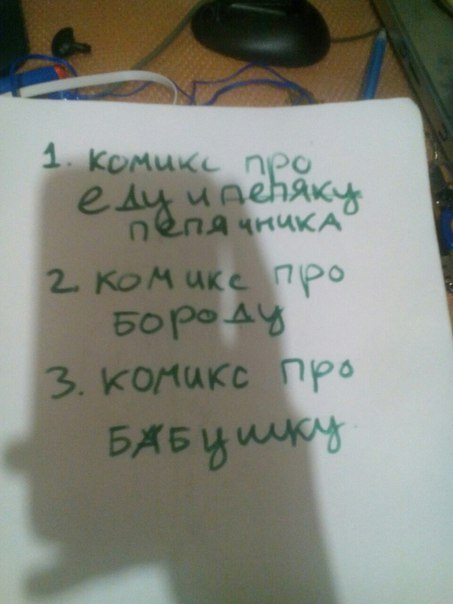 1. комикс про
еду и пепяку
пепячника
2 комикс про
бороду
3. комикс про
бабушку